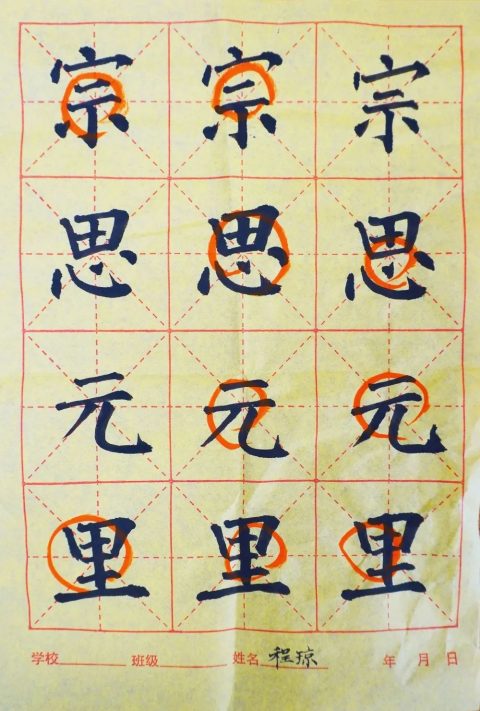 宗 宗 宗
思 思 思
元 元 元
里 里 里
学校 班级 姓名 程琼 年 月 日